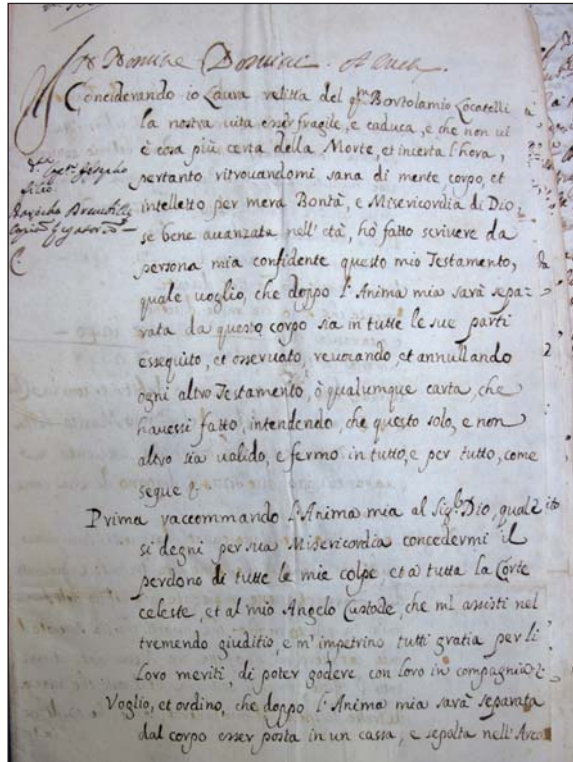 In Nomine Domini
Conciderando io Laura relitta del qm Bortolamio Locatelli
la nostra uita esser fragile, e caduca, e che non ui
è cosa più certa della Morte, et incerta l'hora,
pertanto ritrouandomi sana di mente, corpo, et
intelletto per mera Bontà, e Misericordia di Dio,
se bene auanzata nell'età, hò fatto scriuere da
persona mia confidente questo mio Testamento,
quale uoglio, che doppo l'Anima mia sarà sepa-
rata da questo corpo sia in tutte le sue parti
essequito, et osseruato, reuocando, et annullando
ogni altro Testamento, ò qualumque carta, che
hauessi fatto, intendendo, che questo solo, e non
altro sia ualido, e fermo in tutto, e per tutto, come
segue
Prima raccommando l'Anima mia al Sigr Dio, qual
si degni per sua Misericordia concedermi il
perdono di tutte le mie colpe, et a tutta la Corte
celeste, et al mio Angelo Custode, che mi assisti nel
tremendo giuditio, e m'impetrino tutti gratia per li
loro meriti, di poter godere con loro in compagnia
Voglio, et ordino, che doppo l'Anima mia sarà separata
dal corpo esser posta in un cassa, e sepolta nell'Arca